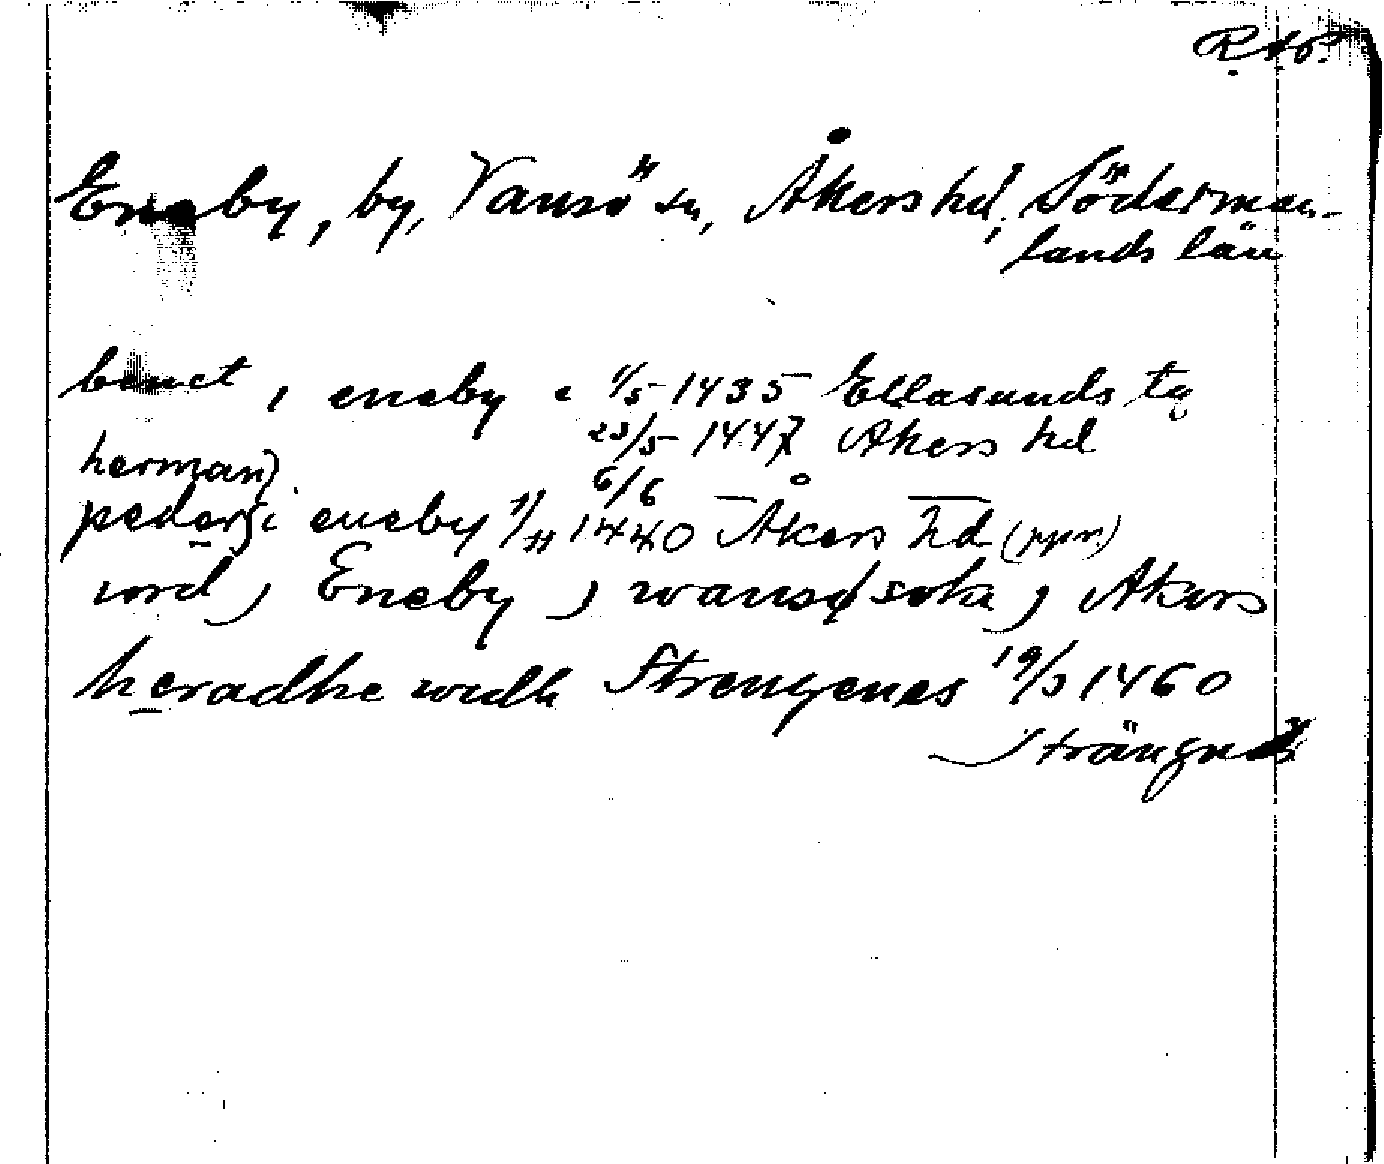 R.A.P.
Eneby, by, Vansö sn, Åkers hd, Söderman-
lands län
benct, i eneby 1/5 1435 Ellasunds tg
23/5 1447 Akers hd
herman)
6/6
peder i eneby 1/11 1440 Åkers hd (ppr)
iord i Eneby i wansø sokn i Akers
heradhe widh Strengenes 19/3 1460
Strängnäs